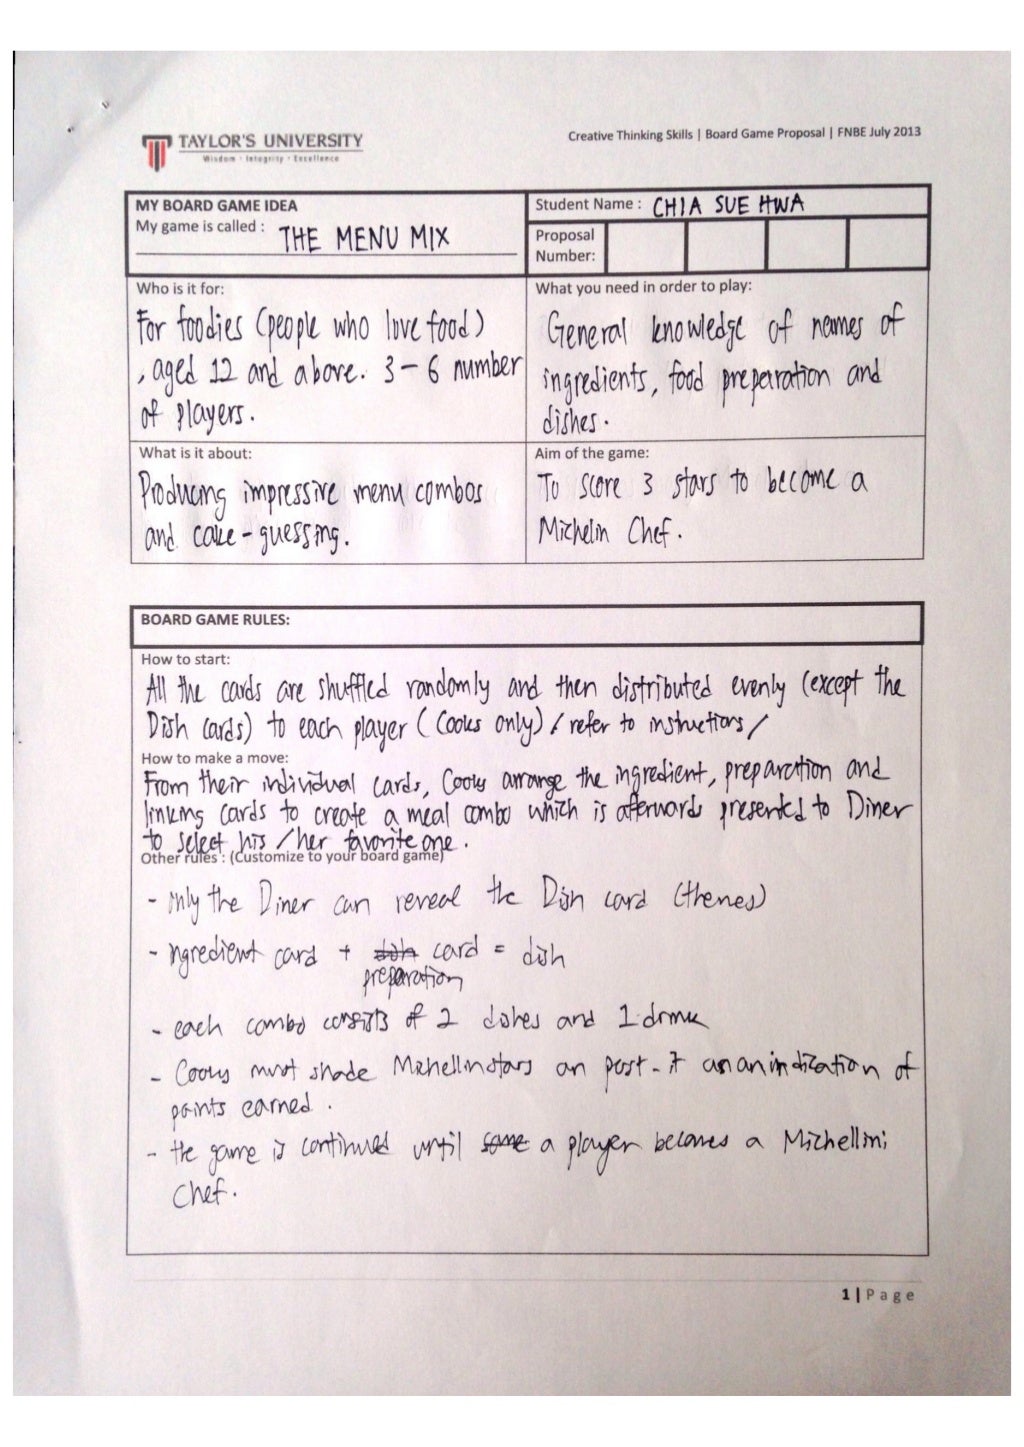 TAYLOR'S UNIVERSITY
Wisdom · Integrity · Excellence
Creative Thinking Skills | Board Game Proposal | FNBE July 2013
MY BOARD GAME IDEA
My game is called : THE MENU MIX
Student Name : CHIA SUE HWA
Proposal
Number:
Who is it for:
For foodies (people who love food)
, aged 12 and above. 3 - 6 number
of players.
What you need in order to play:
General knowledge of names of
ingredients, food preparation and
dishes.
What is it about:
Producing impressive menu combos
and cake-guessing.
Aim of the game:
To score 3 stars to become a
Michelin Chef.
BOARD GAME RULES:
How to start:
All the cards are shuffled randomly and then distributed evenly (except the
Dish cards) to each player (Cooks only) / refer to instructions /
How to make a move:
From their individual cards, Cooks arrange the ingredient, preparation and
linking cards to create a meal combo which is afterwards presented to Diner
to select his / her favorite one.
Other rules : (Customize to your board game)
- only the Diner can reveal the Dish card (themes)
- ingredient card + dish card = dish
preparation
- each combo consists of 2 dishes and 1 drink
- Cooks must shade Michellin stars on post-it as an indication of
points earned.
- the game is continued until some a player becomes a Michellini
Chef.
1 | Page